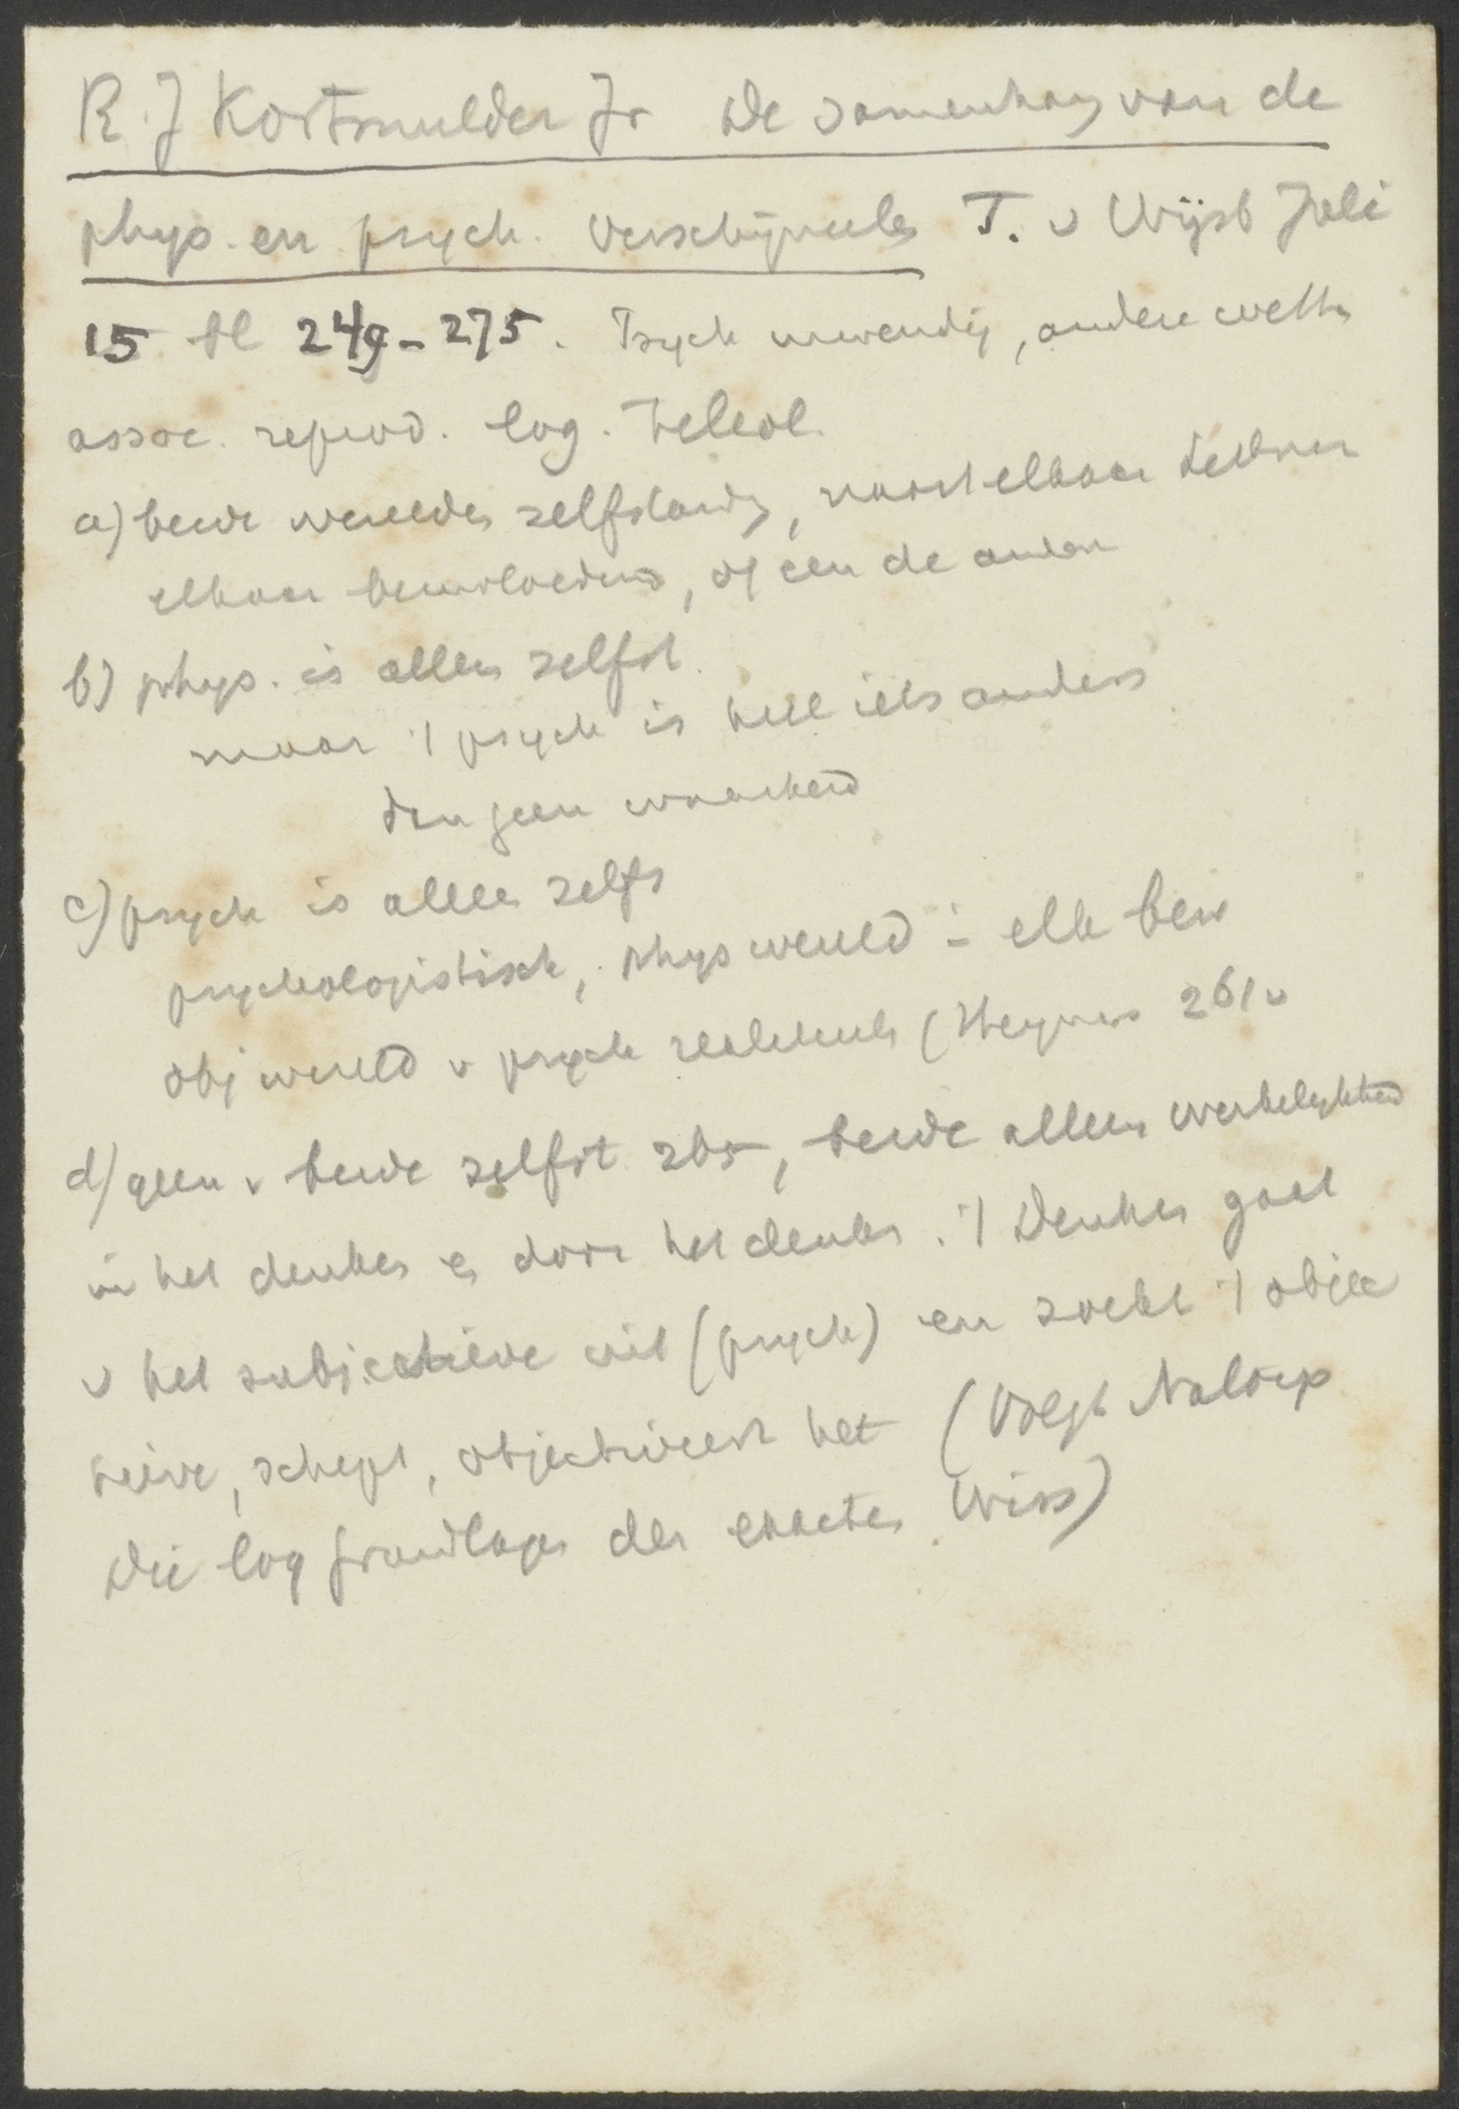 R. J Kortmulder Jr De samenhang van de
phys. en psych. verschijnselen T. v Wijsb Juli
15 bl 249-275. Psych inwendig, andere wetten
assoc. reprod. log. teleol.
a) beide werelden zelfstandig, naast elkaar
elkaar beinvloedend, of een de andere
b) phys. is alleen zelfst.
maar 't psych is heel iets anders
dan geen waarheid
c) psych is alleen zelfst
psychologistisch, phys wereld = elk bew
obj wereld v psych realiteiten (Heymans 261v
d) geen v beide zelfst zijn, beide alleen werkelijkheid
in het denken en door het denken. 't Denken gaat
v het subjectieve uit (psych) en zoekt 't objec
tieve, schept, objectiveert het (volgt Natorp
Die log Grundlagen der exacten Wiss)